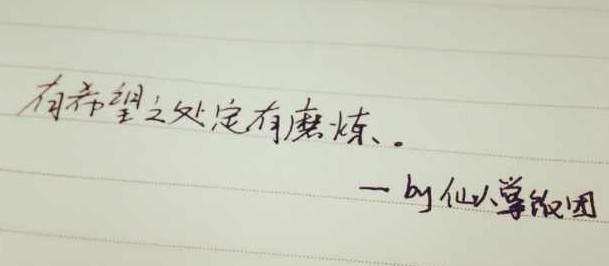 有希望之处定有磨炼.
— by 仙人掌饭团